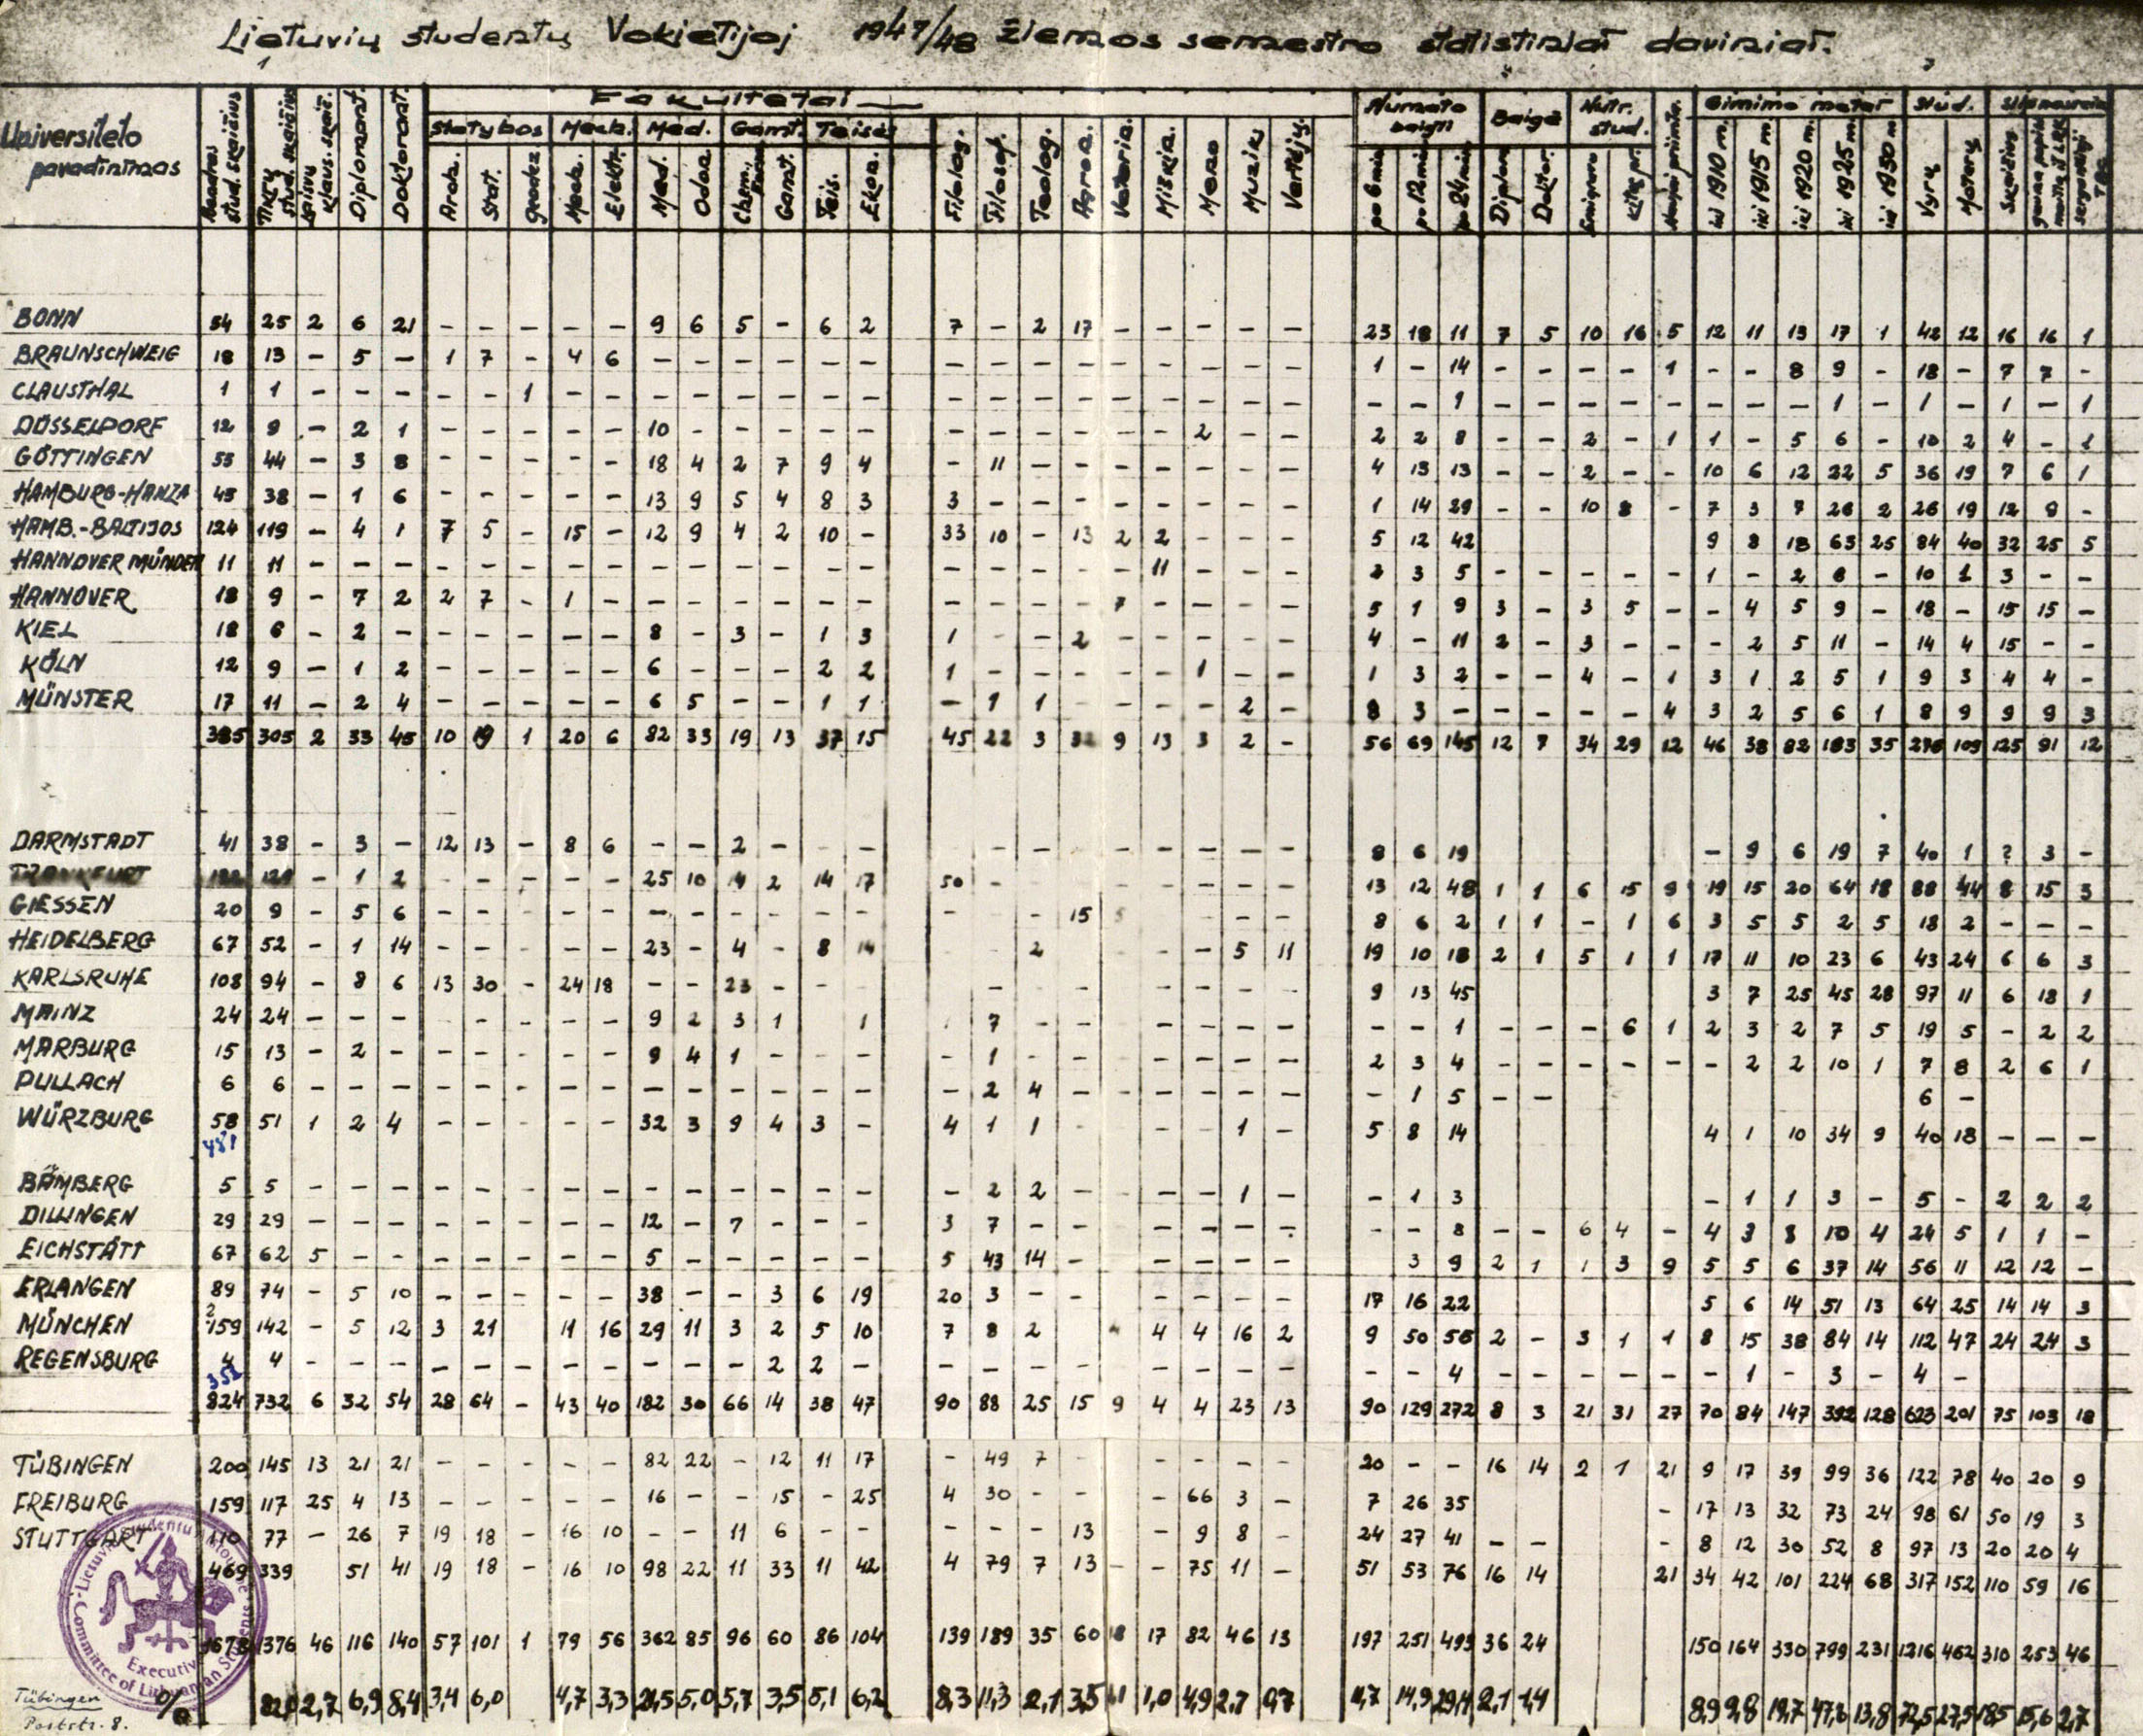 Lietuvių studentų Vokietijoj 1947/48 žiemos semestro statistiniai daviniai.
Universiteto pavadinimas
Bendras stud. skaičius
Tikrų stud. skaičius
Laisvų klaus. skaič.
Diplomant.
Doktorant.
Fakultetai
Statybos Mech. Med. Gamt. Teisės
Arch. Stat. Geodez. Mech. Elektr. Med. Odon. Chem. Gamt. Teis. Ekon.
Filolog. Filosof. Teolog. Agron. Veterin. Miškin. Meno Muzik. Vertėjų.
Numato baigti
po 6 mėn. po 12 mėn. po 24 mėn.
Baigė
Diplom. Doktor.
Nutr. stud.
Emigrav. Kitų pr.
Naujai priimta.
Gimimo metai
iki 1910 m. iki 1915 m. iki 1920 m. iki 1925 m. iki 1930 m.
Stud.
Vyrų Moterų
Skaičius
BONN 54 25 2 6 21 – – – – – 9 6 5 – 6 2 7 – 2 17 – – – – – 23 18 11 7 5 10 16 5 12 11 13 17 1 42 12 16 16 1
BRAUNSCHWEIG 18 13 – 5 – 1 7 – 4 6 – – – – – – – – – – – – – – – 1 – 14 – – – – 1 – – 8 9 – 18 – 7 7 –
CLAUSTHAL 1 1 – – – – – 1 – – – – – – – – – – – – – – – – – – – 1 – – – – – – – – 1 – 1 – 1 – 1
DÜSSELDORF 12 9 – 2 1 – – – – – 10 – – – – – – – – – – – 2 – – 2 2 8 – – 2 – 1 1 – 5 6 – 10 2 4 – 1
GÖTTINGEN 55 44 – 3 8 – – – – – 18 4 2 7 9 4 – 11 – – – – – – – 4 13 13 – – 2 – – 10 6 12 22 5 36 19 7 6 1
HAMBURG-HANZA 45 38 – 1 6 – – – – – 13 9 5 4 8 3 3 – – – – – – – – 1 14 29 – – 10 8 – 7 3 7 26 2 26 19 12 9 –
HAMB.-BALTIJOS 124 119 – 4 1 7 5 – 15 – 12 9 4 2 10 – 33 10 – 13 2 2 – – – 5 12 42 9 8 18 63 25 84 40 32 25 5
HANNOVER MÜNDEN 11 11 – – – – – – – – – – – – – – – – – – – 11 – – – 2 3 5 – – – – – 1 – 2 8 – 10 1 3 – –
HANNOVER 18 9 – 7 2 2 7 – 1 – – – – – – – – – – – 7 – – – – 5 1 9 3 – 3 5 – – 4 5 9 – 18 – 15 15 –
KIEL 18 6 – 2 – – – – – – 8 – 3 – 1 3 1 – – 2 – – – – – 4 – 11 2 – 3 – – – 2 5 11 – 14 4 15 – –
KÖLN 12 9 – 1 2 – – – – – 6 – – – 2 2 1 – – – – – 1 – – 1 3 2 – – 4 – 1 3 1 2 5 1 9 3 4 4 –
MÜNSTER 17 11 – 2 4 – – – – – 6 5 – – 1 1 – 1 1 – – – – 2 – 8 3 – – – – – 4 3 2 5 6 1 8 9 9 9 3
385 305 2 33 45 10 19 1 20 6 82 33 19 13 37 15 45 22 3 32 9 13 3 2 – 56 69 145 12 7 34 29 12 46 38 82 183 35 276 109 125 91 12
DARMSTADT 41 38 – 3 – 12 13 – 8 6 – – 2 – – – – – – – – – – – – 8 6 19 – 9 6 19 7 40 1 ? 3 –
FRANKFURT – 1 2 – – – – – 25 10 14 2 14 17 50 – – – – – – – – 13 12 48 1 1 6 15 9 19 15 20 64 18 88 44 8 15 3
GIESSEN 20 9 – 5 6 – – – – – – – – – – – – – – 15 5 – – – 8 6 2 1 1 – 1 6 3 5 5 2 5 18 2 – – –
HEIDELBERG 67 52 – 1 14 – – – – – 23 – 4 – 8 14 2 – – 5 11 19 10 18 2 1 5 1 1 17 11 10 23 6 43 24 6 6 3
KARLSRUHE 108 94 – 8 6 13 30 – 24 18 – – 23 – – – – – – – – – – 9 13 45 3 7 25 45 28 97 11 6 18 1
MAINZ 24 24 – – – – – – – – 9 2 3 1 1 7 – – – – – – – – – 1 – – – 6 1 2 3 2 7 5 19 5 – 2 2
MARBURG 15 13 – 2 – – – – – – 9 4 1 – – – – 1 – – – – – – 2 3 4 – – – – – – 2 2 10 1 7 8 2 6 1
PULLACH 6 6 – – – – – – – – – – – – – – – 2 4 – – – – – – – 1 5 – – 6 –
WÜRZBURG 58 51 1 2 4 – – – – – 32 3 9 4 3 – 4 1 1 – – – 1 – 5 8 14 4 1 10 34 9 40 18 – – –
481
BAMBERG 5 5 – – – – – – – – – – – – – – – 2 2 – – – 1 – – 1 3 – 1 1 3 – 5 – 2 2 2
DILLINGEN 29 29 – – – – – – – – 12 – 7 – – – 3 7 – – – – – – – – – 8 – – 6 4 – 4 3 8 10 4 24 5 1 1 –
EICHSTÄTT 67 62 5 – – – – – – – 5 – – – – – 5 43 14 – – – – – 3 9 2 1 1 3 9 5 5 6 37 14 56 11 12 12 –
ERLANGEN 89 74 – 5 10 – – – – – 38 – – 3 6 19 20 3 – – – – – – 17 16 22 5 6 14 51 13 64 25 14 14 3
MÜNCHEN 159 142 – 5 12 3 21 11 16 29 11 3 2 5 10 7 8 2 4 4 16 2 9 50 58 2 – 3 1 1 8 15 38 84 14 112 47 24 24 3
REGENSBURG 4 4 – – – – – – – – – – – 2 2 – – – – – – – – – – – 4 – – – – – – 1 – 3 – 4 –
353
824 732 6 32 54 28 64 – 43 40 182 30 66 14 38 47 90 88 25 15 9 4 4 23 13 90 129 272 8 3 21 31 27 70 84 147 392 128 623 201 75 103 18
TÜBINGEN 200 145 13 21 21 – – – – – 82 22 – 12 11 17 – 49 7 – – – – 20 – – 16 14 2 1 21 9 17 39 99 36 122 78 40 20 9
FREIBURG 159 117 25 4 13 – – – – – 16 – – 15 – 25 4 30 – – – 66 3 – 7 26 35 – 17 13 32 73 24 98 61 50 19 3
STUTTGART 110 77 – 26 7 19 18 – 16 10 – – 11 6 – – – – – 13 – 9 8 – 24 27 41 – – – 8 12 30 52 8 97 13 20 20 4
469 339 51 41 19 18 – 16 10 98 22 11 33 11 42 4 79 7 13 – – 75 11 – 51 53 76 16 14 21 34 42 101 224 68 317 152 110 59 16
1678 1376 46 116 140 57 101 1 79 56 362 85 96 60 86 104 139 189 35 60 18 17 82 46 13 197 251 493 36 24 150 164 330 799 231 1216 462 310 253 46
% 82,0 2,7 6,9 8,4 3,4 6,0 4,7 3,3 21,5 5,0 5,7 3,5 5,1 6,2 8,3 11,3 2,1 3,5 1,1 1,0 4,9 2,7 0,7 11,7 14,9 29,4 2,1 1,4 8,9 9,8 19,7 47,6 13,8 72,5 27,5 18,5 15,6 2,7
Executive Committee of Lithuanian Students
Tübingen
Poststr. 8.